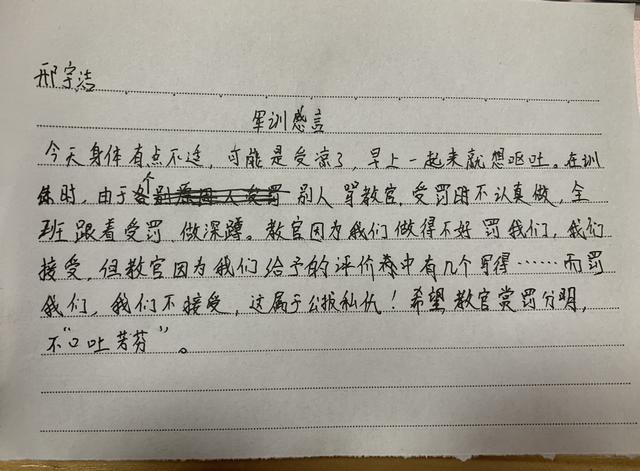 邢宇洁
军训感言
今天身体有点不适，可能是受凉了，早上一起来就想呕吐。在训
练时，由于个别人骂教官，受罚时不认真做，全
班跟着受罚，做深蹲。教官因为我们做得不好罚我们，我们
接受，但教官因为我们给予的评价卷中有几个写得……而罚
我们，我们不接受，这属于公报私仇！希望教官赏罚分明，
不“口吐芳芬”。